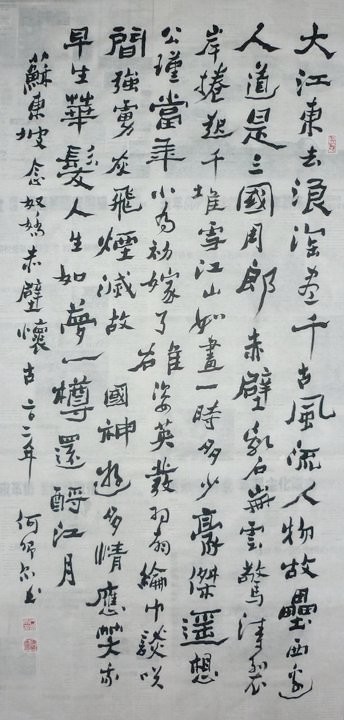 大江東去浪淘盡千古風流人物故壘西邊
人道是三國周郎赤壁亂石崩雲驚濤裂
岸捲起千堆雪江山如畫一時多少豪傑遙想
公瑾當年小喬初嫁了雄姿英發羽扇綸巾談笑
間強虜灰飛煙滅故國神遊多情應笑我
早生華髮人生如夢一樽還酹江月
蘇東坡念奴嬌赤壁懷古 年 何 書